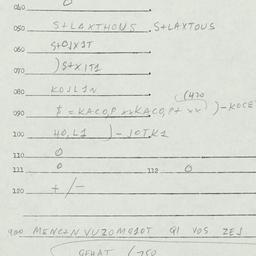 040 0
050 S+LAXTHOUS. S+LAXTOUS
060 S+OJXIT
070 )S+XIT1.
080 KOJL1N
090 $=KACO,P KACO,P+ )-KOCE
100 40,L1 )-JOTK1
110 0
111 0 112 0
120 +/-
900 MENC+N VUZOMO10T QI VOS ZEJ
GEHAT /750